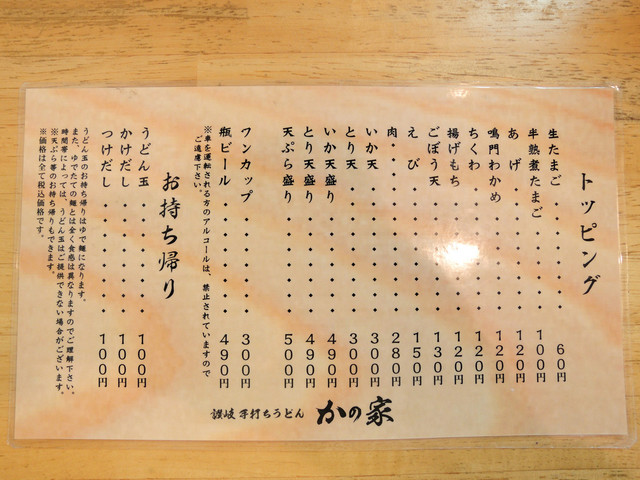 トッピング
生たまご・・・・・・・・・・60円
半熟煮たまご・・・・・・・・100円
あげ・・・・・・・・・・120円
鳴門わかめ・・・・・・・・120円
ちくわ・・・・・・・・・・120円
揚げもち・・・・・・・・・120円
ごぼう天・・・・・・・・・130円
えび・・・・・・・・・・150円
肉・・・・・・・・・・・280円
いか天・・・・・・・・・・300円
とり天・・・・・・・・・・300円
いか天盛り・・・・・・・・490円
とり天盛り・・・・・・・・490円
天ぷら盛り・・・・・・・・500円
ワンカップ・・・・・・・・300円
瓶ビール・・・・・・・・・490円
※車を運転される方のアルコールは、禁止されていますので
ご遠慮下さい。
お持ち帰り
うどん玉・・・・・・・100円
かけだし・・・・・・・100円
つけだし・・・・・・・100円
うどん玉のお持ち帰りはゆで麺になります。
また、ゆでたての麺とは全く食感は異なりますのでご理解下さい。
時間帯によっては、うどん玉はご提供できない場合がございます。
※天ぷら等のお持ち帰りもできます。
※価格は全て税込価格です。
讃岐 手打ちうどん かの家